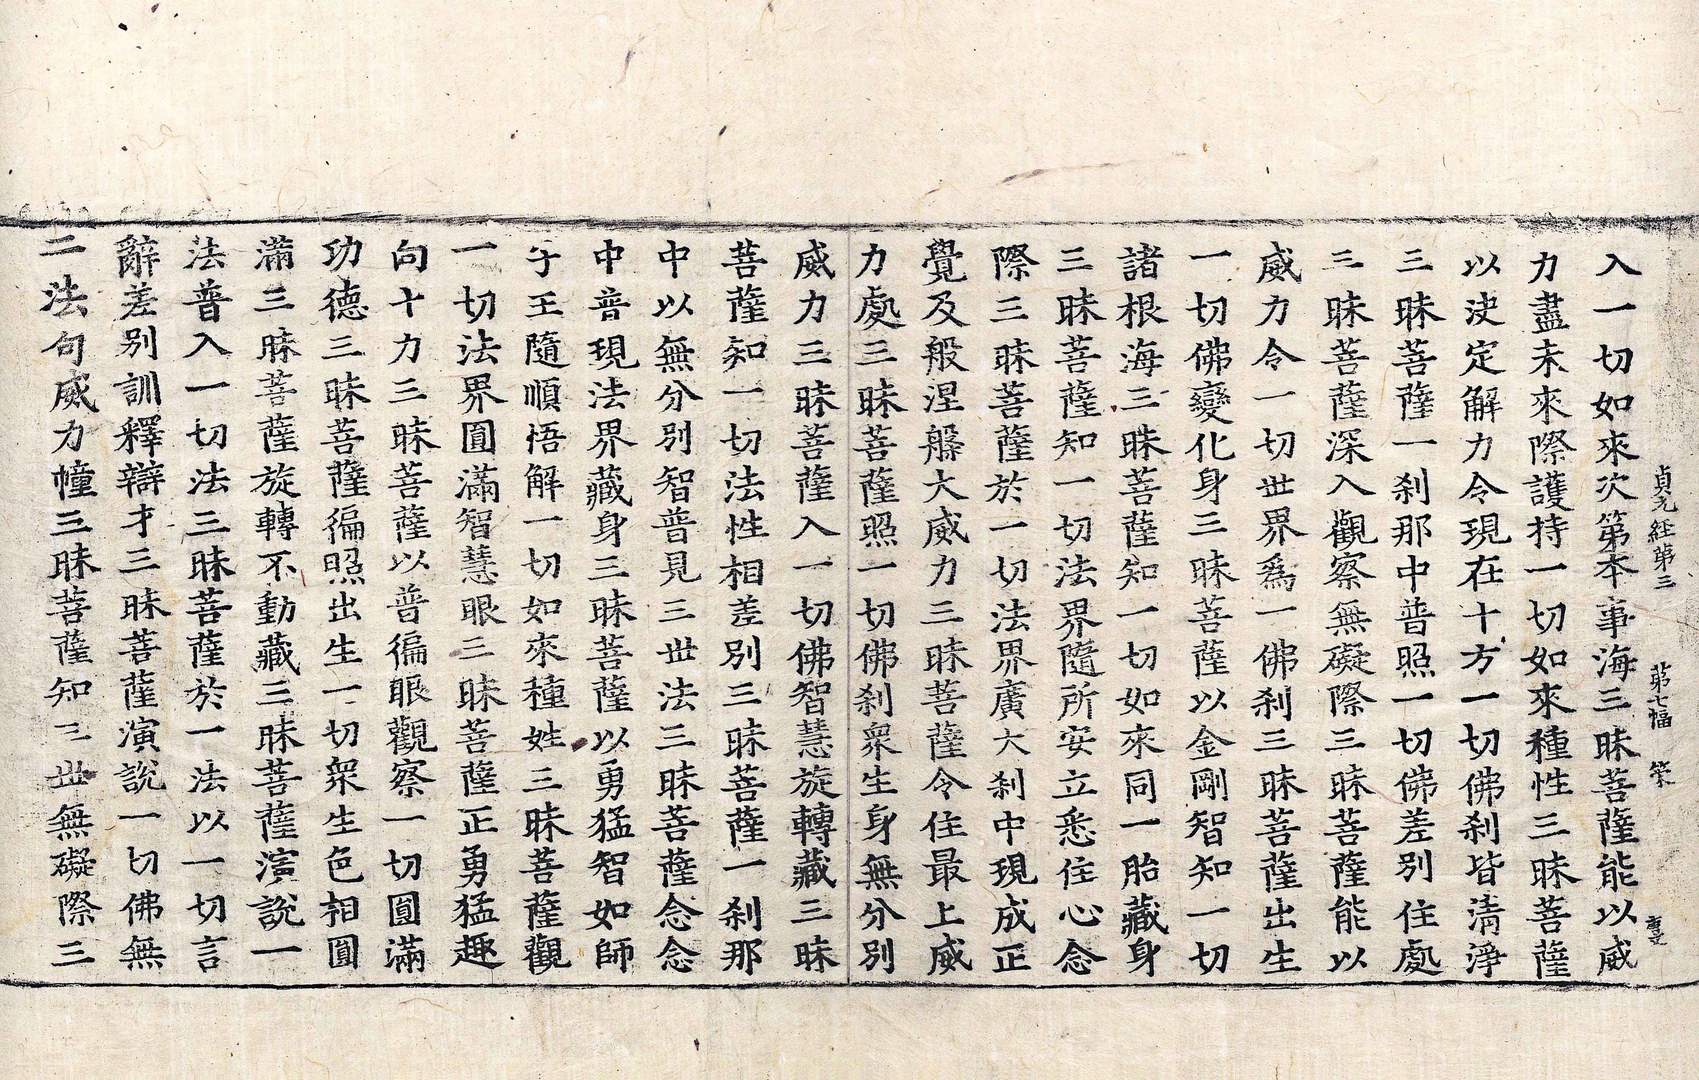 貞元經第三 第七幅 築
入一切如來次第本事海三昧菩薩能以威
力盡未來際護持一切如來種性三昧菩薩
以決定解力令現在十方一切佛刹皆清淨
三昧菩薩一刹那中普照一切佛差別住處
三昧菩薩深入觀察無礙際三昧菩薩能以
威力令一切世界爲一佛刹三昧菩薩出生
一切佛變化身三昧菩薩以金剛智知一切
諸根海三昧菩薩知一切如來同一胎藏身
三昧菩薩知一切法界隨所安立悉住心念
際三昧菩薩於一切法界廣大刹中現成正
覺及般涅槃大威力三昧菩薩令住最上威
力處三昧菩薩照一切佛刹衆生身無分別
威力三昧菩薩入一切佛智慧旋轉藏三昧
菩薩知一切法性相差別三昧菩薩一刹那
中以無分別智普見三世法三昧菩薩念念
中普現法界藏身三昧菩薩以勇猛智如師
子王隨順悟解一切如來種姓三昧菩薩觀
一切法界圓滿智慧眼三昧菩薩正勇猛趣
向十力三昧菩薩以普徧眼觀察一切圓滿
功德三昧菩薩徧照出生一切衆生色相圓
滿三昧菩薩旋轉不動藏三昧菩薩演說一
法普入一切法三昧菩薩於一法以一切言
辭差別訓釋辯才三昧菩薩演說一切佛無
二法句威力幢三昧菩薩知三世無礙際三